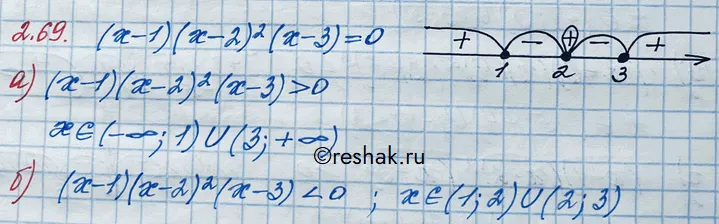 2.69. (x-1)(x-2)²(x-3)=0 + - + - + 1 2 3
а) (x-1)(x-2)²(x-3)>0
x∈(-∞;1)∪(3;+∞)
©reshak.ru
б) (x-1)(x-2)²(x-3)<0 ; x∈(1;2)∪(2;3)